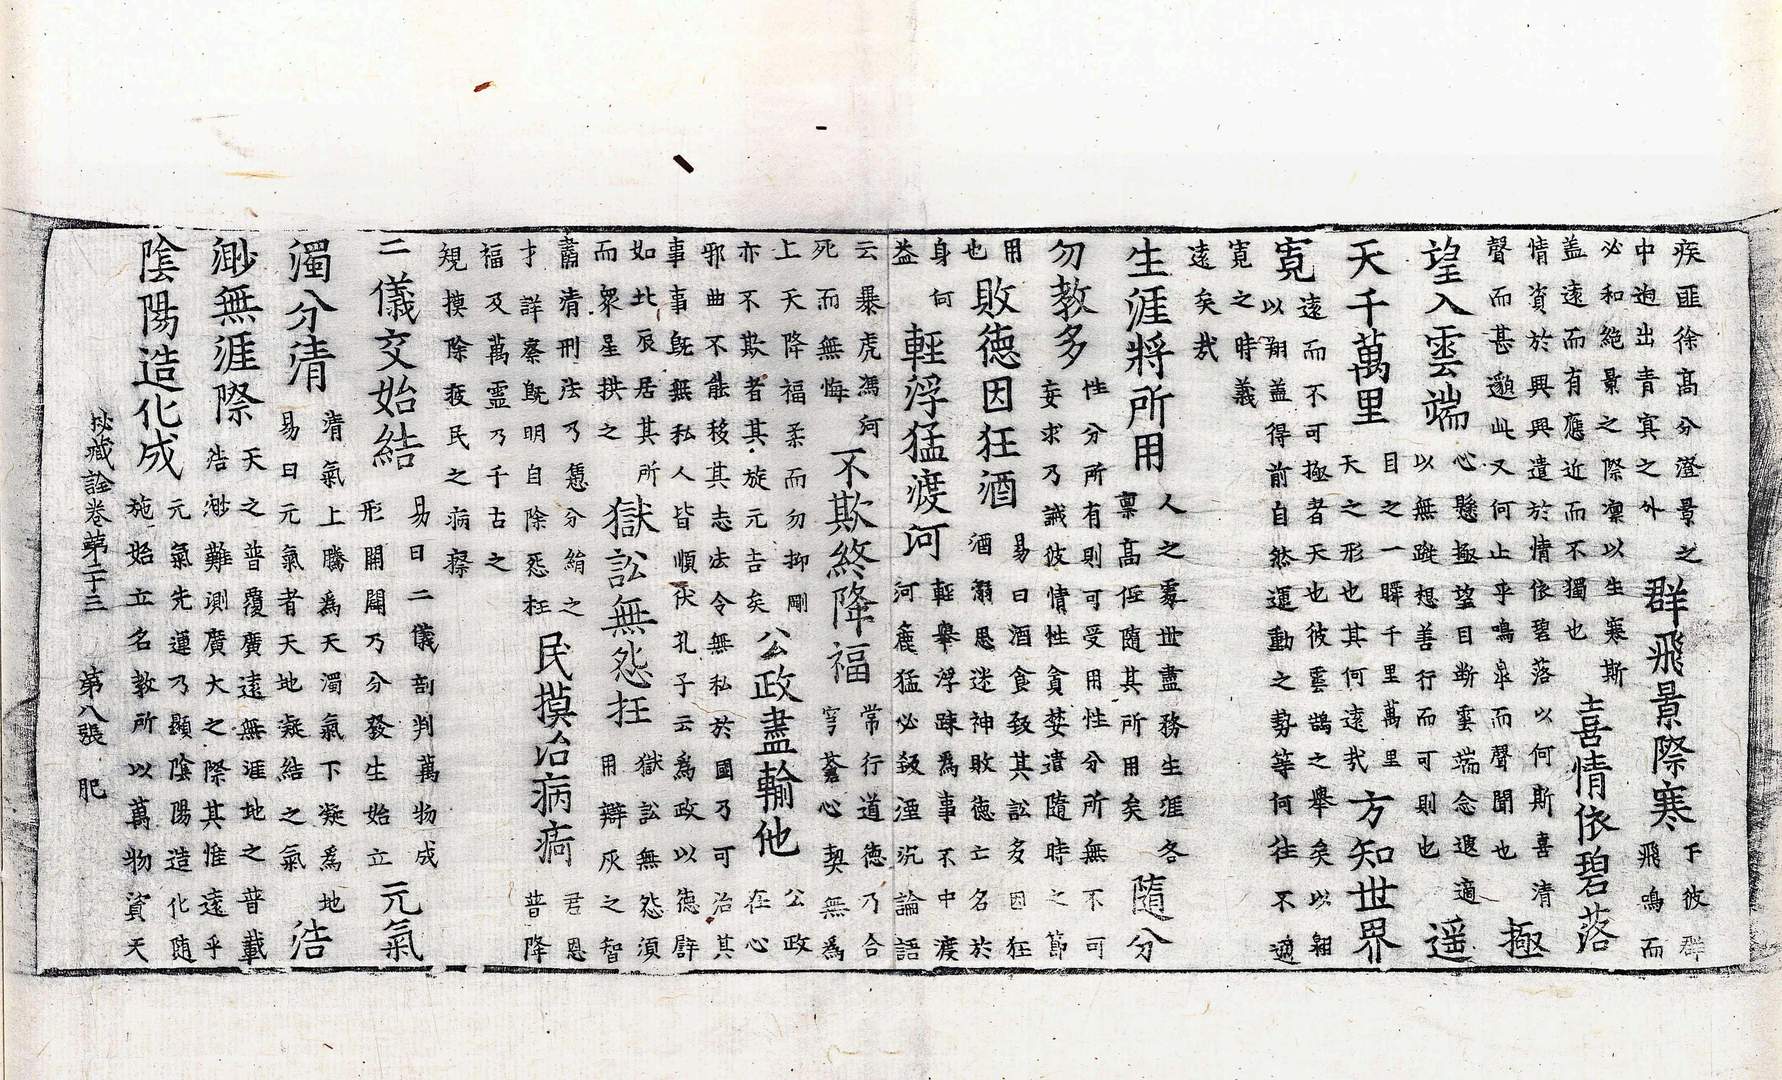 疾匪徐高分澄景之
中逈出青㝠之外
群飛景際寒
下彼群
飛鳴而
必和絶景之際凜以生寒斯
盖遠而有應近而不獨也
喜情依碧落
情資於興興遣於情依碧落以何斯喜清
聲而甚邈此又何止乎鳴臯而聲聞也
極
望入雲端
心懸極望目断雲端念遐適
以無蹤想善行而可則也
遥
天千萬里
目之一瞬千里萬里
天之形也其何遠㢤
方知世界
寛
遠而不可極者天也彼雲鵠之舉矣以翱
以翔盖得前自然運動之勢等何往不適
寛之時義
遠矣㢤
生涯將所用
人之處世盡務生涯各
禀高低隨其所用矣
隨分
勿教多
性分所有則可受用性分所無不可
妄求乃誡彼情性貪婪遣隨時之節
用
也
敗德因狂酒
易曰酒食致其訟多因狂
酒溺思迷神敗德亡名於
身何
益
輕浮猛渡河
輕舉浮踈爲事不中渡
河麁猛必致湮沉論語
云暴虎馮河
死而無悔
不欺終降福
常行道德乃合
穹蒼心契無爲
上天降福柔而勿抑剛
亦不欺者其旋元吉矣
公政盡輸他
公政
在心
邪曲不能移其志法令無私於國乃可治其
事事旣無私人皆順伏孔子云爲政以德譬
如北辰居其所
而衆星拱之
獄訟無怨抂
獄訟無怨須
用辯灰之智
肅清刑法乃憑分絹之
才詳察旣明自除怨枉
民摸治病痾
君恩
普降
福及萬靈乃千古之
規摸除疲民之病瘵
二儀交始結
易曰二儀剖判萬物成
形開闢乃分發生始立
元氣
濁分清
清氣上騰爲天濁氣下凝爲地
易曰元氣者天地凝結之氣
浩
渺無涯際
天之普覆廣遠無涯地之普載
浩渺難測廣大之際其惟遠乎
陰陽造化成
元氣先運乃顯陰陽造化随
施始立名教所以萬物資天
秘藏詮卷第二十三 第八張 肥